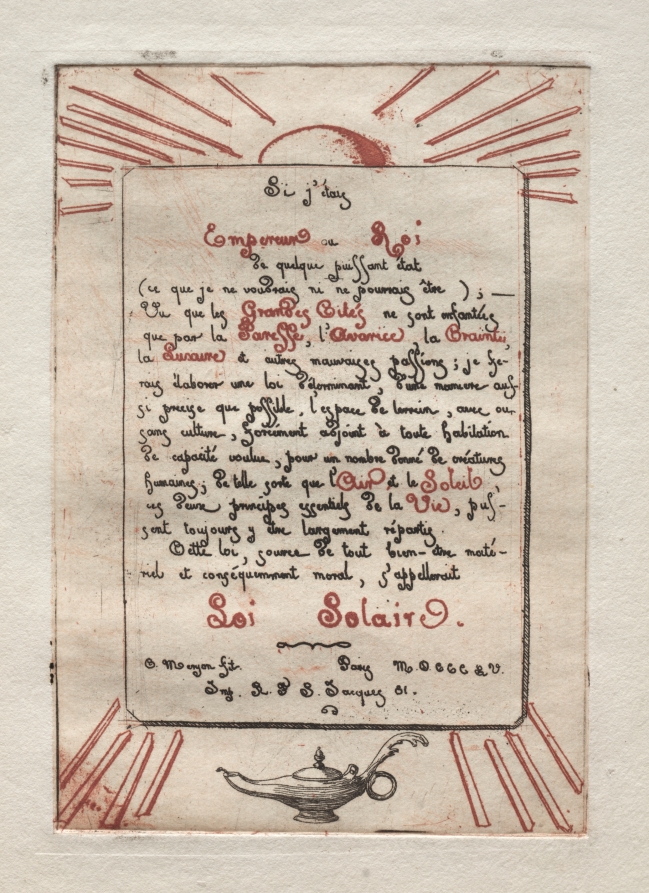 Si j'étais
Empereur ou Roi
de quelque puissant état
(ce que je ne voudrais ni ne pourrais être ) ; —
Vu que les Grandes Cités ne sont enfantées
que par la Paresse, l'Avarice, la Crainte,
la Luxure et autres mauvaises passions ; je fe-
rais élaborer une loi déterminant, d'une manière aus-
si precise que possible, l'espace de terrain, avec ou
sans culture, forcément adjoint à toute habitation
de capacité voulue, pour un nombre donné de créatures
humaines ; de telle sorte que l'Air et le Soleil
ces deux principes essentiels de la Vie, puis-
sent toujours y être largement répartis.
Cette loi, source de tout bien-être maté-
riel et conséquemment moral, s'appellerait
Loi Solaire.
C. Meryon fit. Paris M.D.CCC LV.
Imp. R. S. Jacques 81.